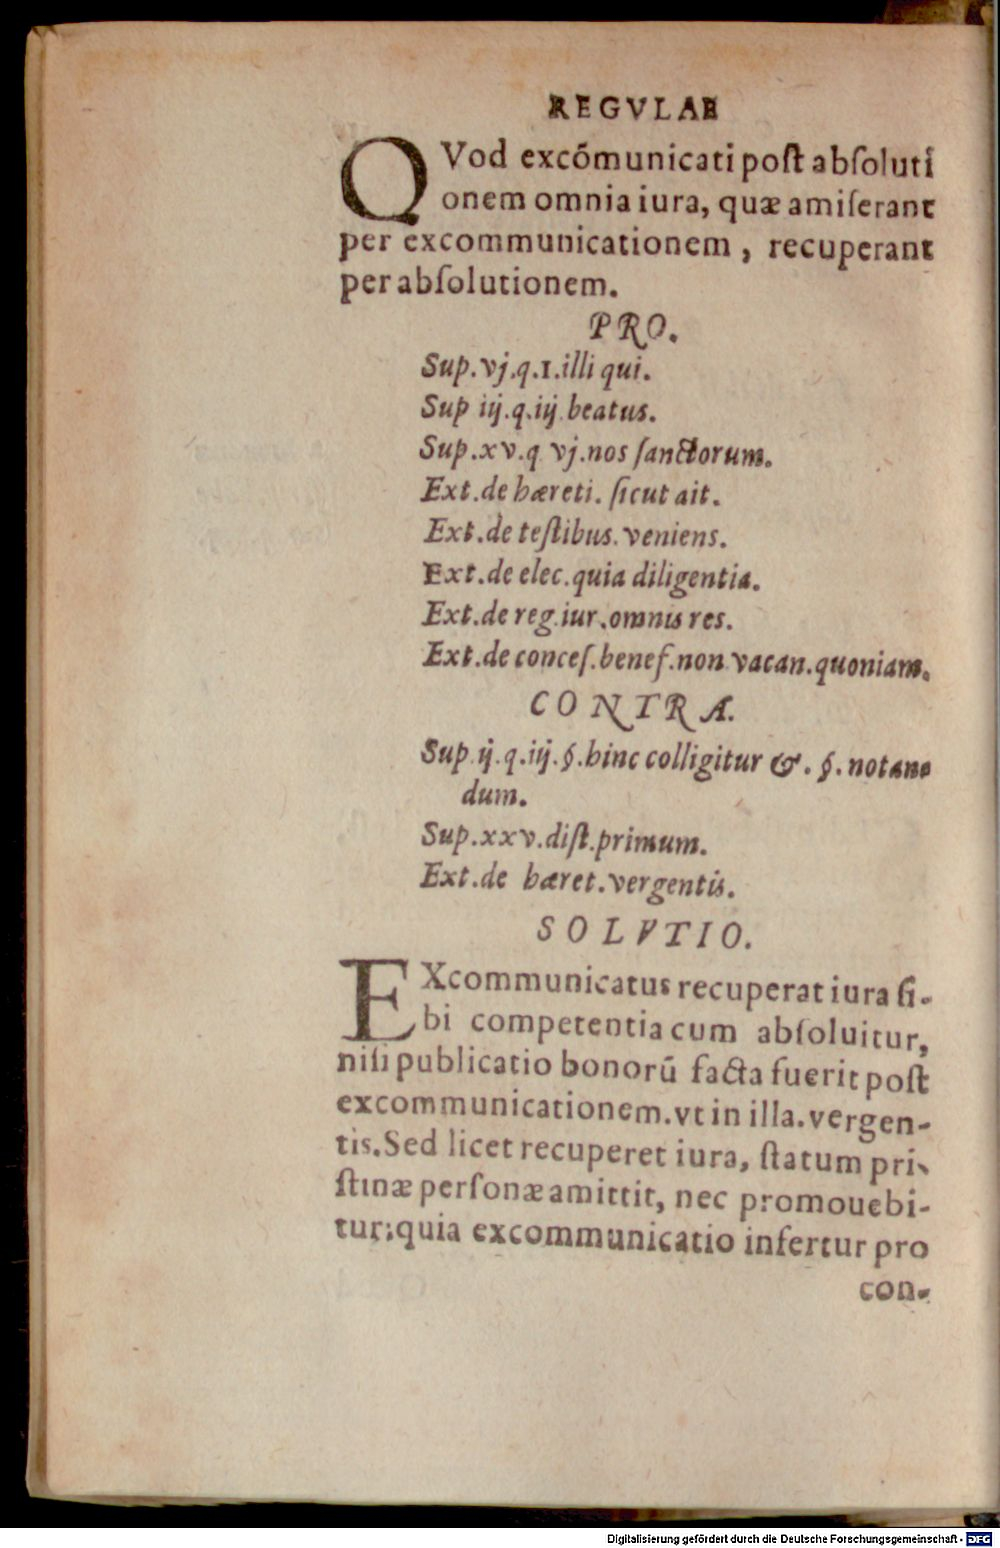 REGVLAE
QVod excõmunicati post absoluti
onem omnia iura, quæ amiserant
per excommunicationem, recuperant
per absolutionem.
PRO.
Sup.vj.q.1.illi qui.
Sup iij.q.iij beatus.
Sup.xv.q vj.nos sanctorum.
Ext.de hæreti. sicut ait.
Ext.de testibus.veniens.
Ext.de elec.quia diligentia.
Ext.de reg.iur.omnis res.
Ext.de conces.benef.non vacan.quoniam.
CONTRA.
Sup.ij.q.iij.§.hinc colligitur &.§.notan-
dum.
Sup.xxv.dist.primum.
Ext.de hæret.vergentis.
SOLVTIO.
EXcommunicatus recuperat iura si-
bi competentia cum absoluitur,
nisi publicatio bonorũ facta fuerit post
excommunicationem.vt in illa.vergen-
tis.Sed licet recuperet iura, statum pri-
stinæ personæ amittit, nec promouebi-
tur:quia excommunicatio infertur pro
con-
Digitalisierung gefördert durch die Deutsche Forschungsgemeinschaft - DFG